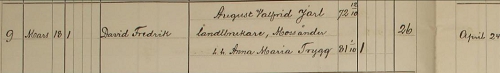 August Valfrid Jarl 72 10/10
9 Mars 18 1 David Fredrik Landtbrukare, Mossånder 26 April 24
h. h. Anna Maria Trygg 81 1/10 1